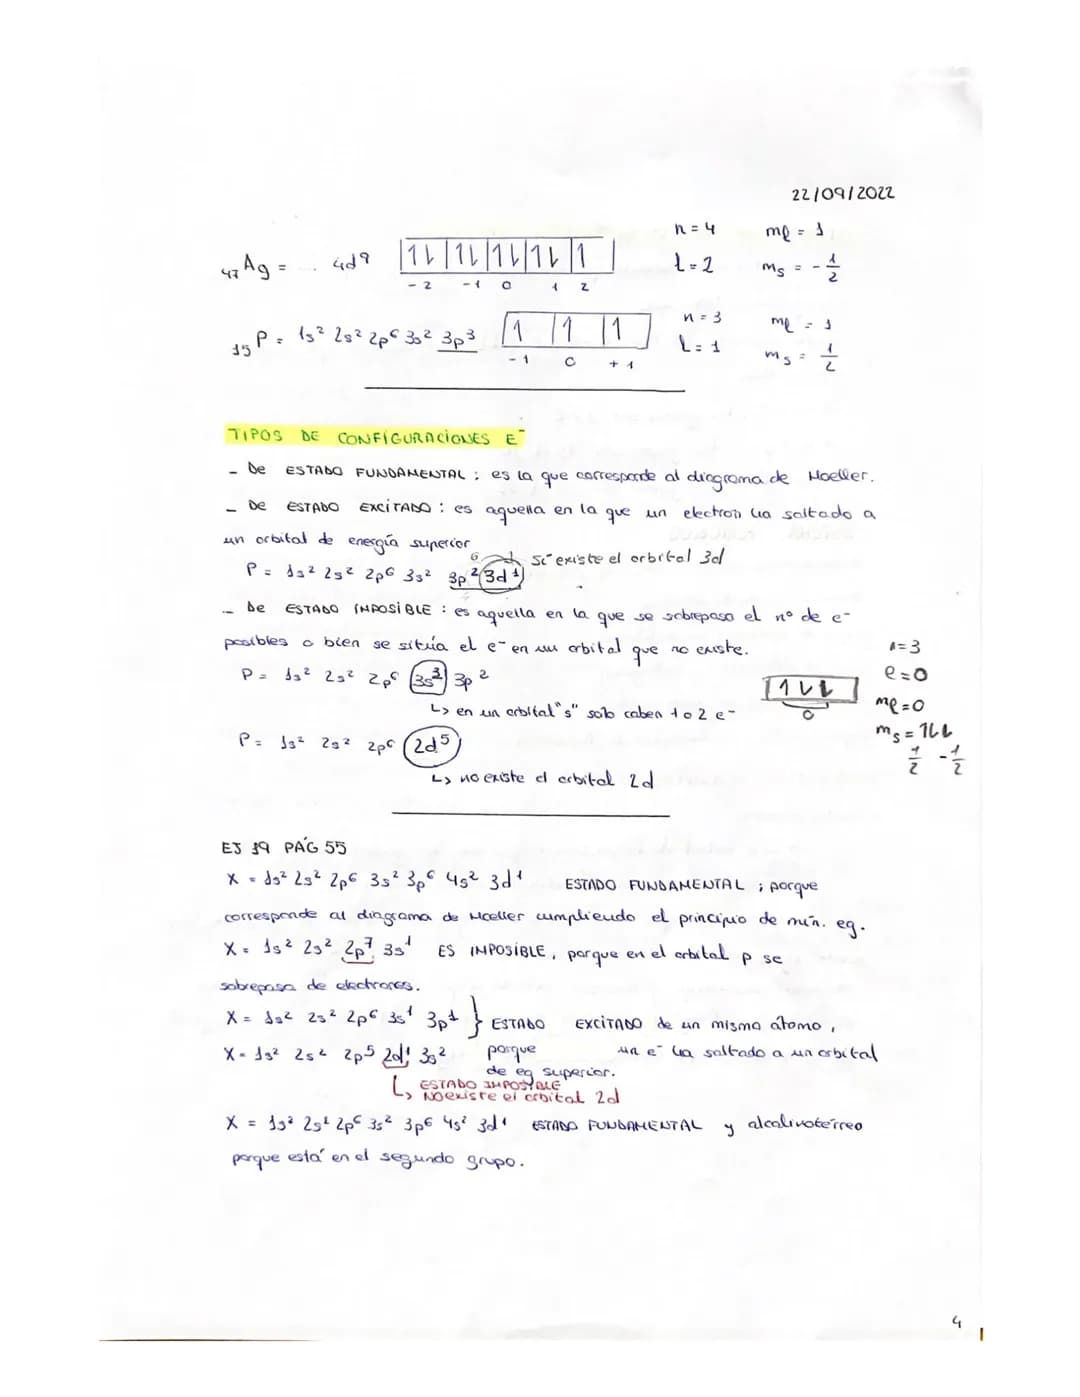 22/09/2022
47Ag = ... 4d⁹ |1L|1L|1L|1L|1| n=4 mℓ = 1
-2 -1 0 1 2 l=2 ms = -1/2
15P = 1s² 2s² 2p⁶ 3s² 3p³ |1|1|1| n=3 mℓ = 1
-1 0 +1 l=1 ms = 1/2
TIPOS DE CONFIGURACIONES E⁻
- De ESTADO FUNDAMENTAL : es la que corresponde al diagrama de Moeller.
- De ESTADO EXCITADO : es aquella en la que un electron ha saltado a
un orbital de energía superior
P = 1s² 2s² 2p⁶ 3s² 3p² 3d¹ Sí existe el orbital 3d
- De ESTADO IMPOSIBLE : es aquella en la que se sobrepasa el nº de e⁻
posibles o bien se sitúa el e⁻ en un orbital que no existe.
P = 1s² 2s² 2p⁶ 3s³ 3p²
↳ en un orbital "s" solo caben 1 o 2 e⁻
|1LL|
0
n=3
l=0
mℓ=0
ms = 1LL
1/2 -1/2
P = 1s² 2s² 2p⁶ 2d⁵
↳ no existe el orbital 2d
EJ 19 PÁG 55
X = 1s² 2s² 2p⁶ 3s² 3p⁶ 4s² 3d¹ ESTADO FUNDAMENTAL ; porque
corresponde al diagrama de Moeller cumpliendo el principio de mín. eg.
X = 1s² 2s² 2p⁷ 3s¹ ES IMPOSIBLE, porque en el orbital p se
sobrepasa de electrones.
X = 1s² 2s² 2p⁶ 3s¹ 3p¹ } ESTADO EXCITADO de un mismo átomo,
X = 1s² 2s² 2p⁵ 2d¹ 3s² porque un e⁻ ha saltado a un orbital
de eg superior.
↳ ESTADO IMPOSIBLE
No existe el orbital 2d
X = 1s² 2s² 2p⁶ 3s² 3p⁶ 4s² 3d¹ ESTADO FUNDAMENTAL y alcalinotérreo
porque está en el segundo grupo.
4